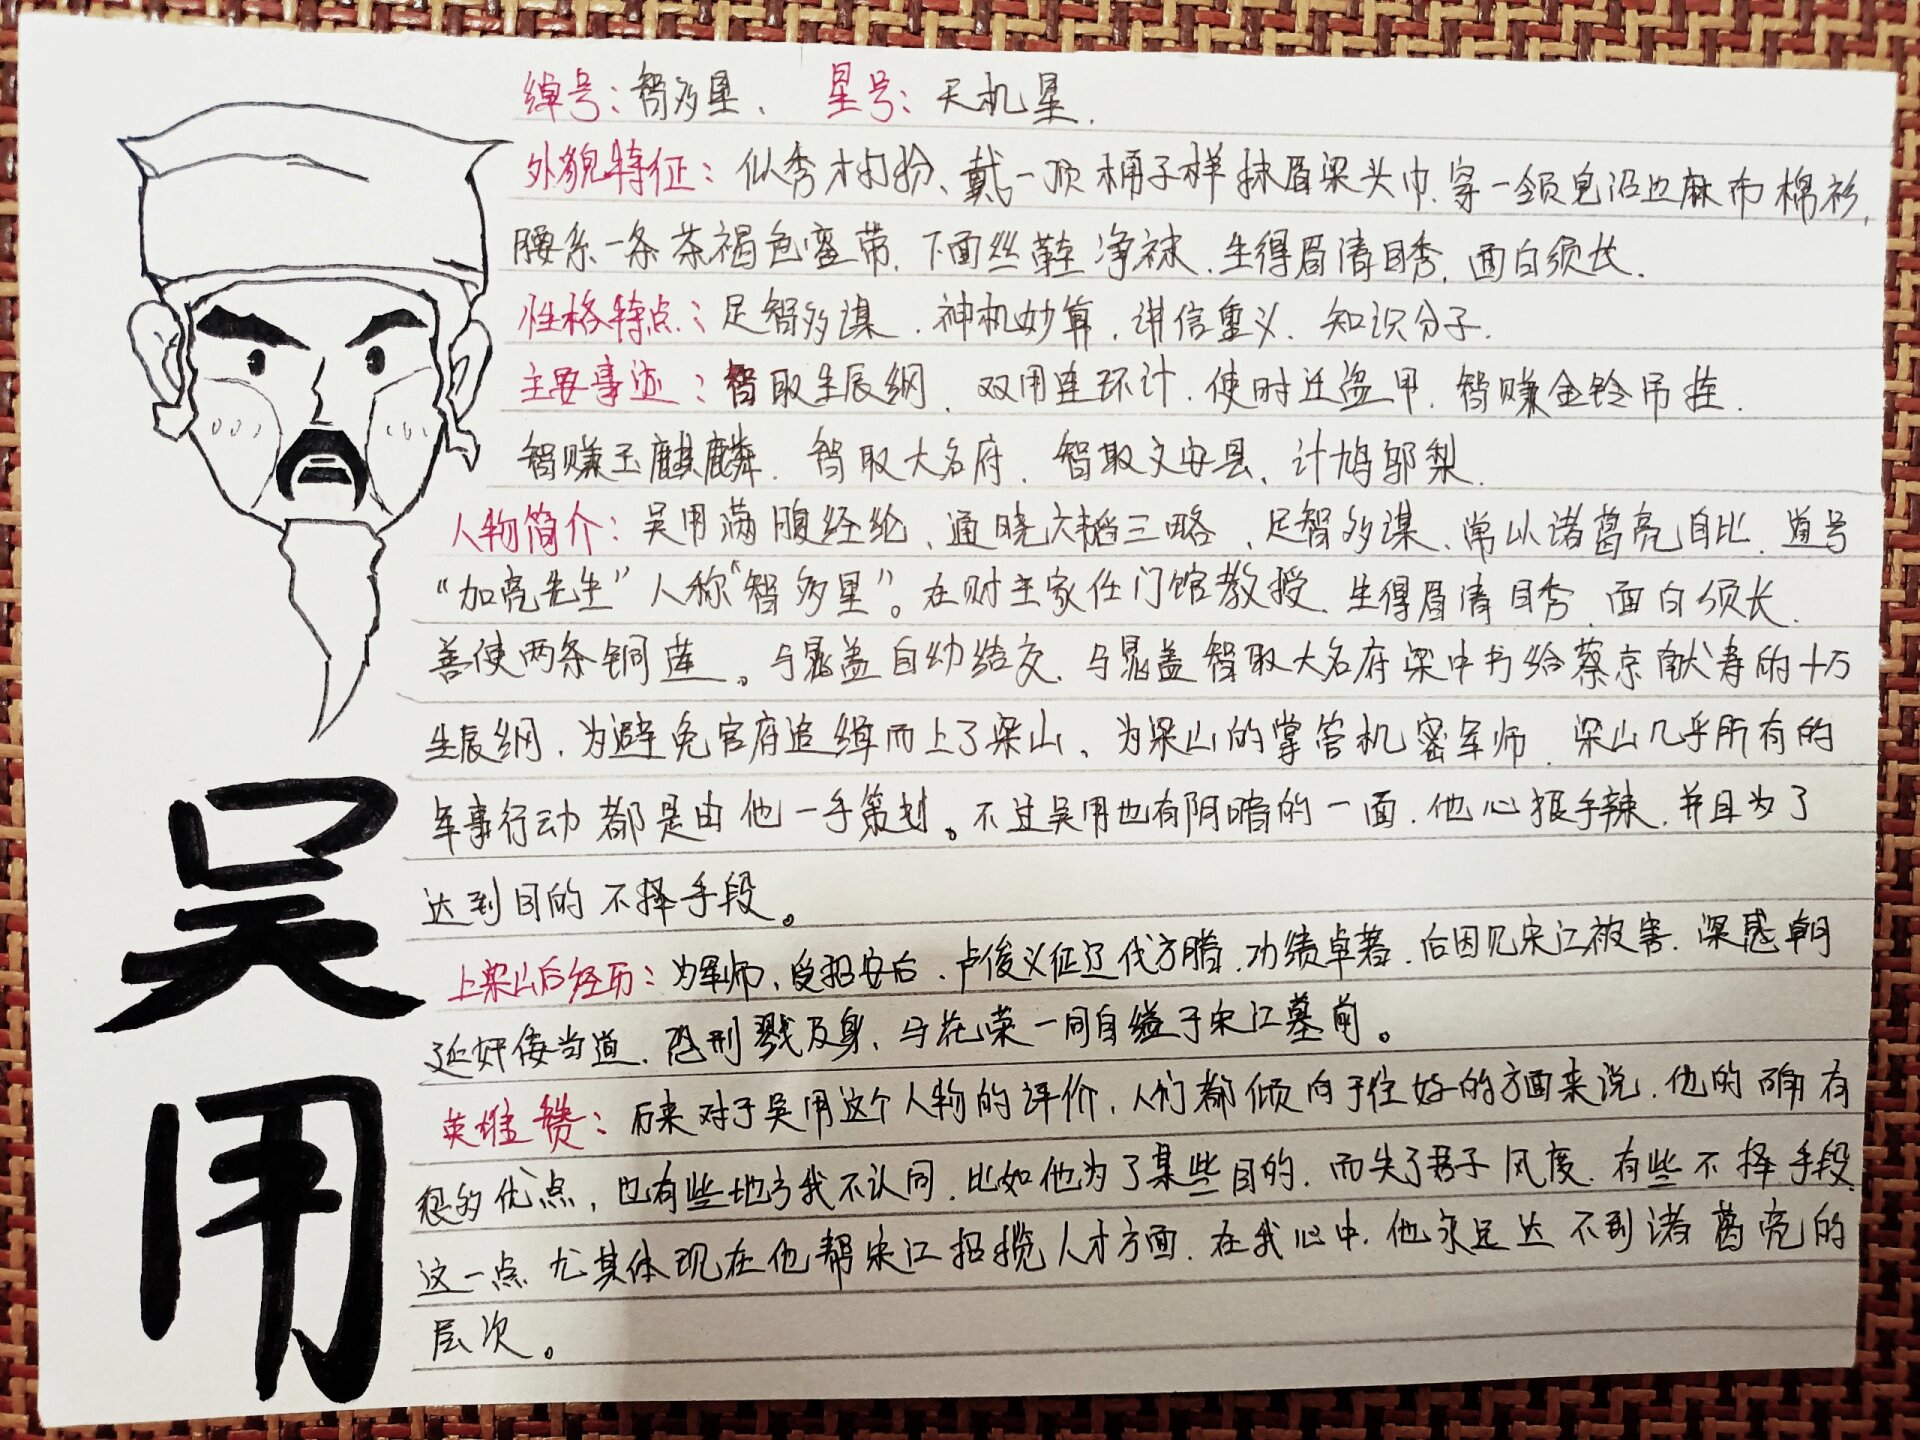 绰号：智多星、 星号：天机星.
外貌特征：似秀才打扮、戴一顶桶子样抹眉梁头巾.穿一领皂沿边麻布棉衫,
腰系一条茶褐色銮带.下面丝鞋净袜.生得眉清目秀.面白须长.
性格特点：足智多谋.神机妙算.讲信重义.知识分子.
主要事迹：智取生辰纲.双用连环计.使时迁盗甲.智赚金铃吊挂.
智赚玉麒麟.智取大名府.智取文安县、计鸩邬梨.
人物简介：吴用满腹经纶、通晓六韬三略、足智多谋、常以诸葛亮自比.道号
“加亮先生”人称“智多星”。在财主家任门馆教授.生得眉清目秀.面白须长.
善使两条铜链。与晁盖自幼结交.与晁盖智取大名府梁中书给蔡京献寿的十万
生辰纲.为避免官府追缉而上了梁山、为梁山的掌管机密军师.梁山几乎所有的
军事行动都是由他一手策划。不过吴用也有阴暗的一面.他心狠手辣.并且为了
达到目的不择手段。
上梁山后经历：为军师、受招安后.卢俊义征辽伐方腊.功绩卓著.后因见宋江被害.深感朝
廷奸佞当道.恐刑戮及身、与花荣一同自缢于宋江墓前。
英雄赞：后来对于吴用这个人物的评价,人们都倾向于往好的方面来说.他的确有
很多优点,也有些地方我不认同.比如他为了某些目的.而失了君子风度.有些不择手段.
这一点尤其体现在他帮宋江招揽人才方面.在我心中.他永远达不到诸葛亮的
层次。
吴用